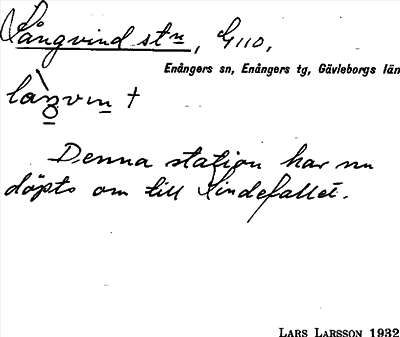 Långvind stn, G110,
Enångers sn, Enångers tg, Gävleborgs län
Denna station har nu
döpts om till Lindefallet.
LARS LARSSON 1932